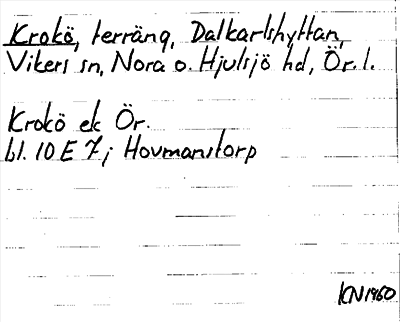 Krokö, terräng, Dalkarlshyttan,
Vikers sn, Nora o. Hjulsjö hd, Ör. l.
Krokö ek Ör.
bl. 10 E 7j Hovmanstorp
KN1960